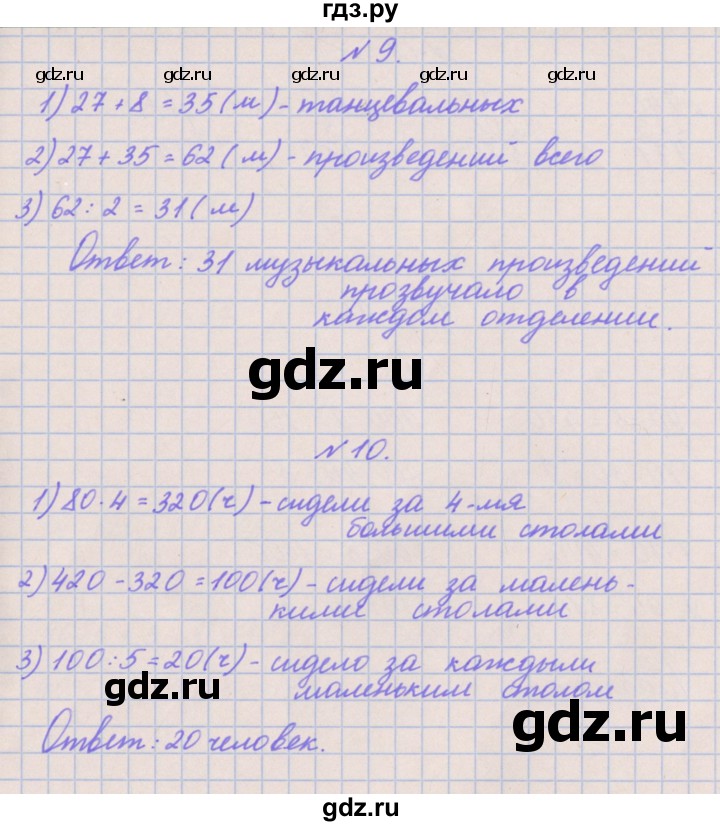 гдз.ру
№ 9.
gdz.ru gdz.ru gdz.ru gdz.ru
1) 27 + 8 = 35 (м) - танцевальных
2) 27 + 35 = 62 (м) - произведений всего
gdz.ru gdz.ru gdz.ru
3) 62 : 2 = 31 (м)
Ответ: 31 музыкальных произведений
прозвучало в
каждом отделении.
gdz.ru
№ 10.
1) 80 · 4 = 320 (ч) - сидели за 4-мя
большими столами
2) 420 - 320 = 100 (ч) - сидели за малень-
кими столами
3) 100 : 5 = 20 (ч) - сидело за каждым
gdz.ru
маленьким столом
gdz.ru
Ответ: 20 человек.
gdz.ru